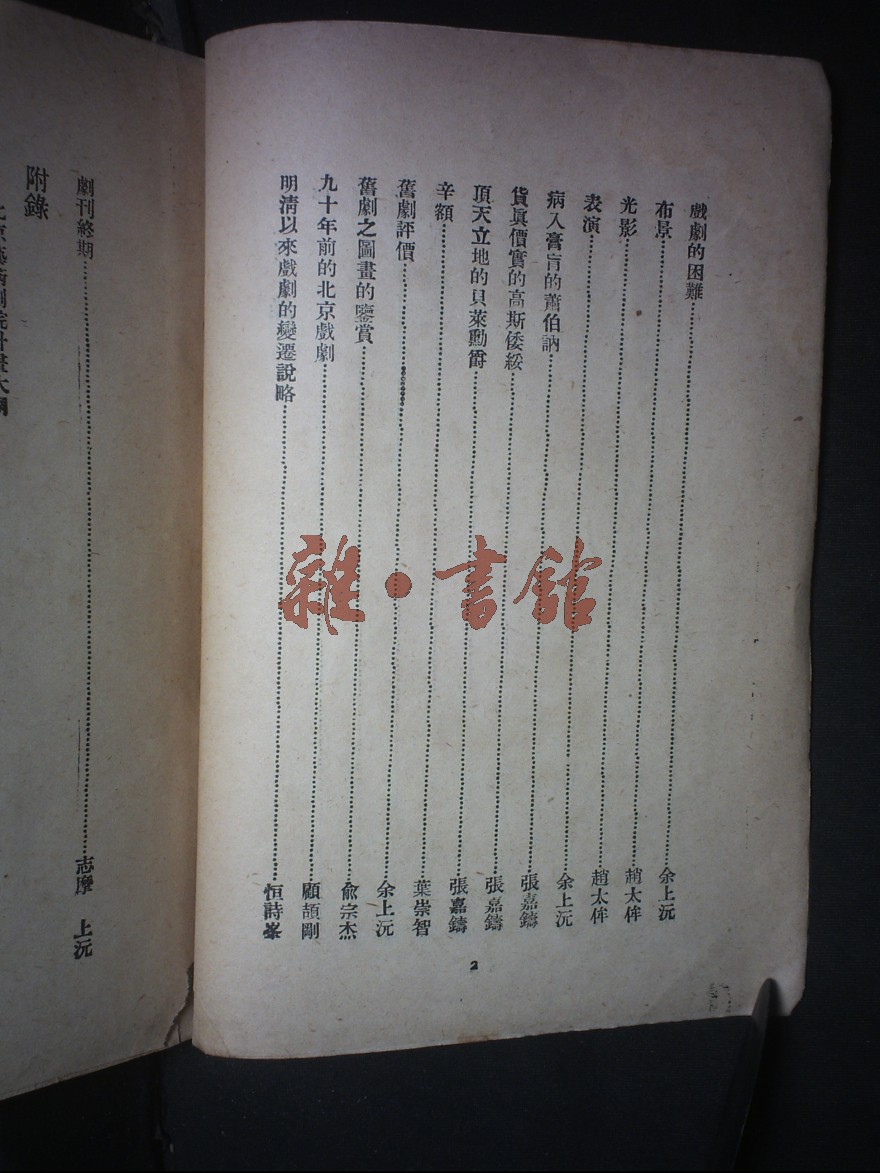 戲劇的困難……余上沅
布景……趙太侔
光影……趙太侔
表演……余上沅
病入膏肓的蕭伯訥……張嘉鑄
貨眞價實的高斯倭綏……張嘉鑄
頂天立地的貝萊勳爵……張嘉鑄
辛額……葉崇智
舊劇評價……余上沅
舊劇之圖畫的鑒賞……俞宗杰
九十年前的北京戲劇……顧頡剛
明清以來戲劇的變遷說略……恒詩峯
2
劇刊終期……志摩 上沅
附錄
京藝術劇院計畫大綱
雜·書館